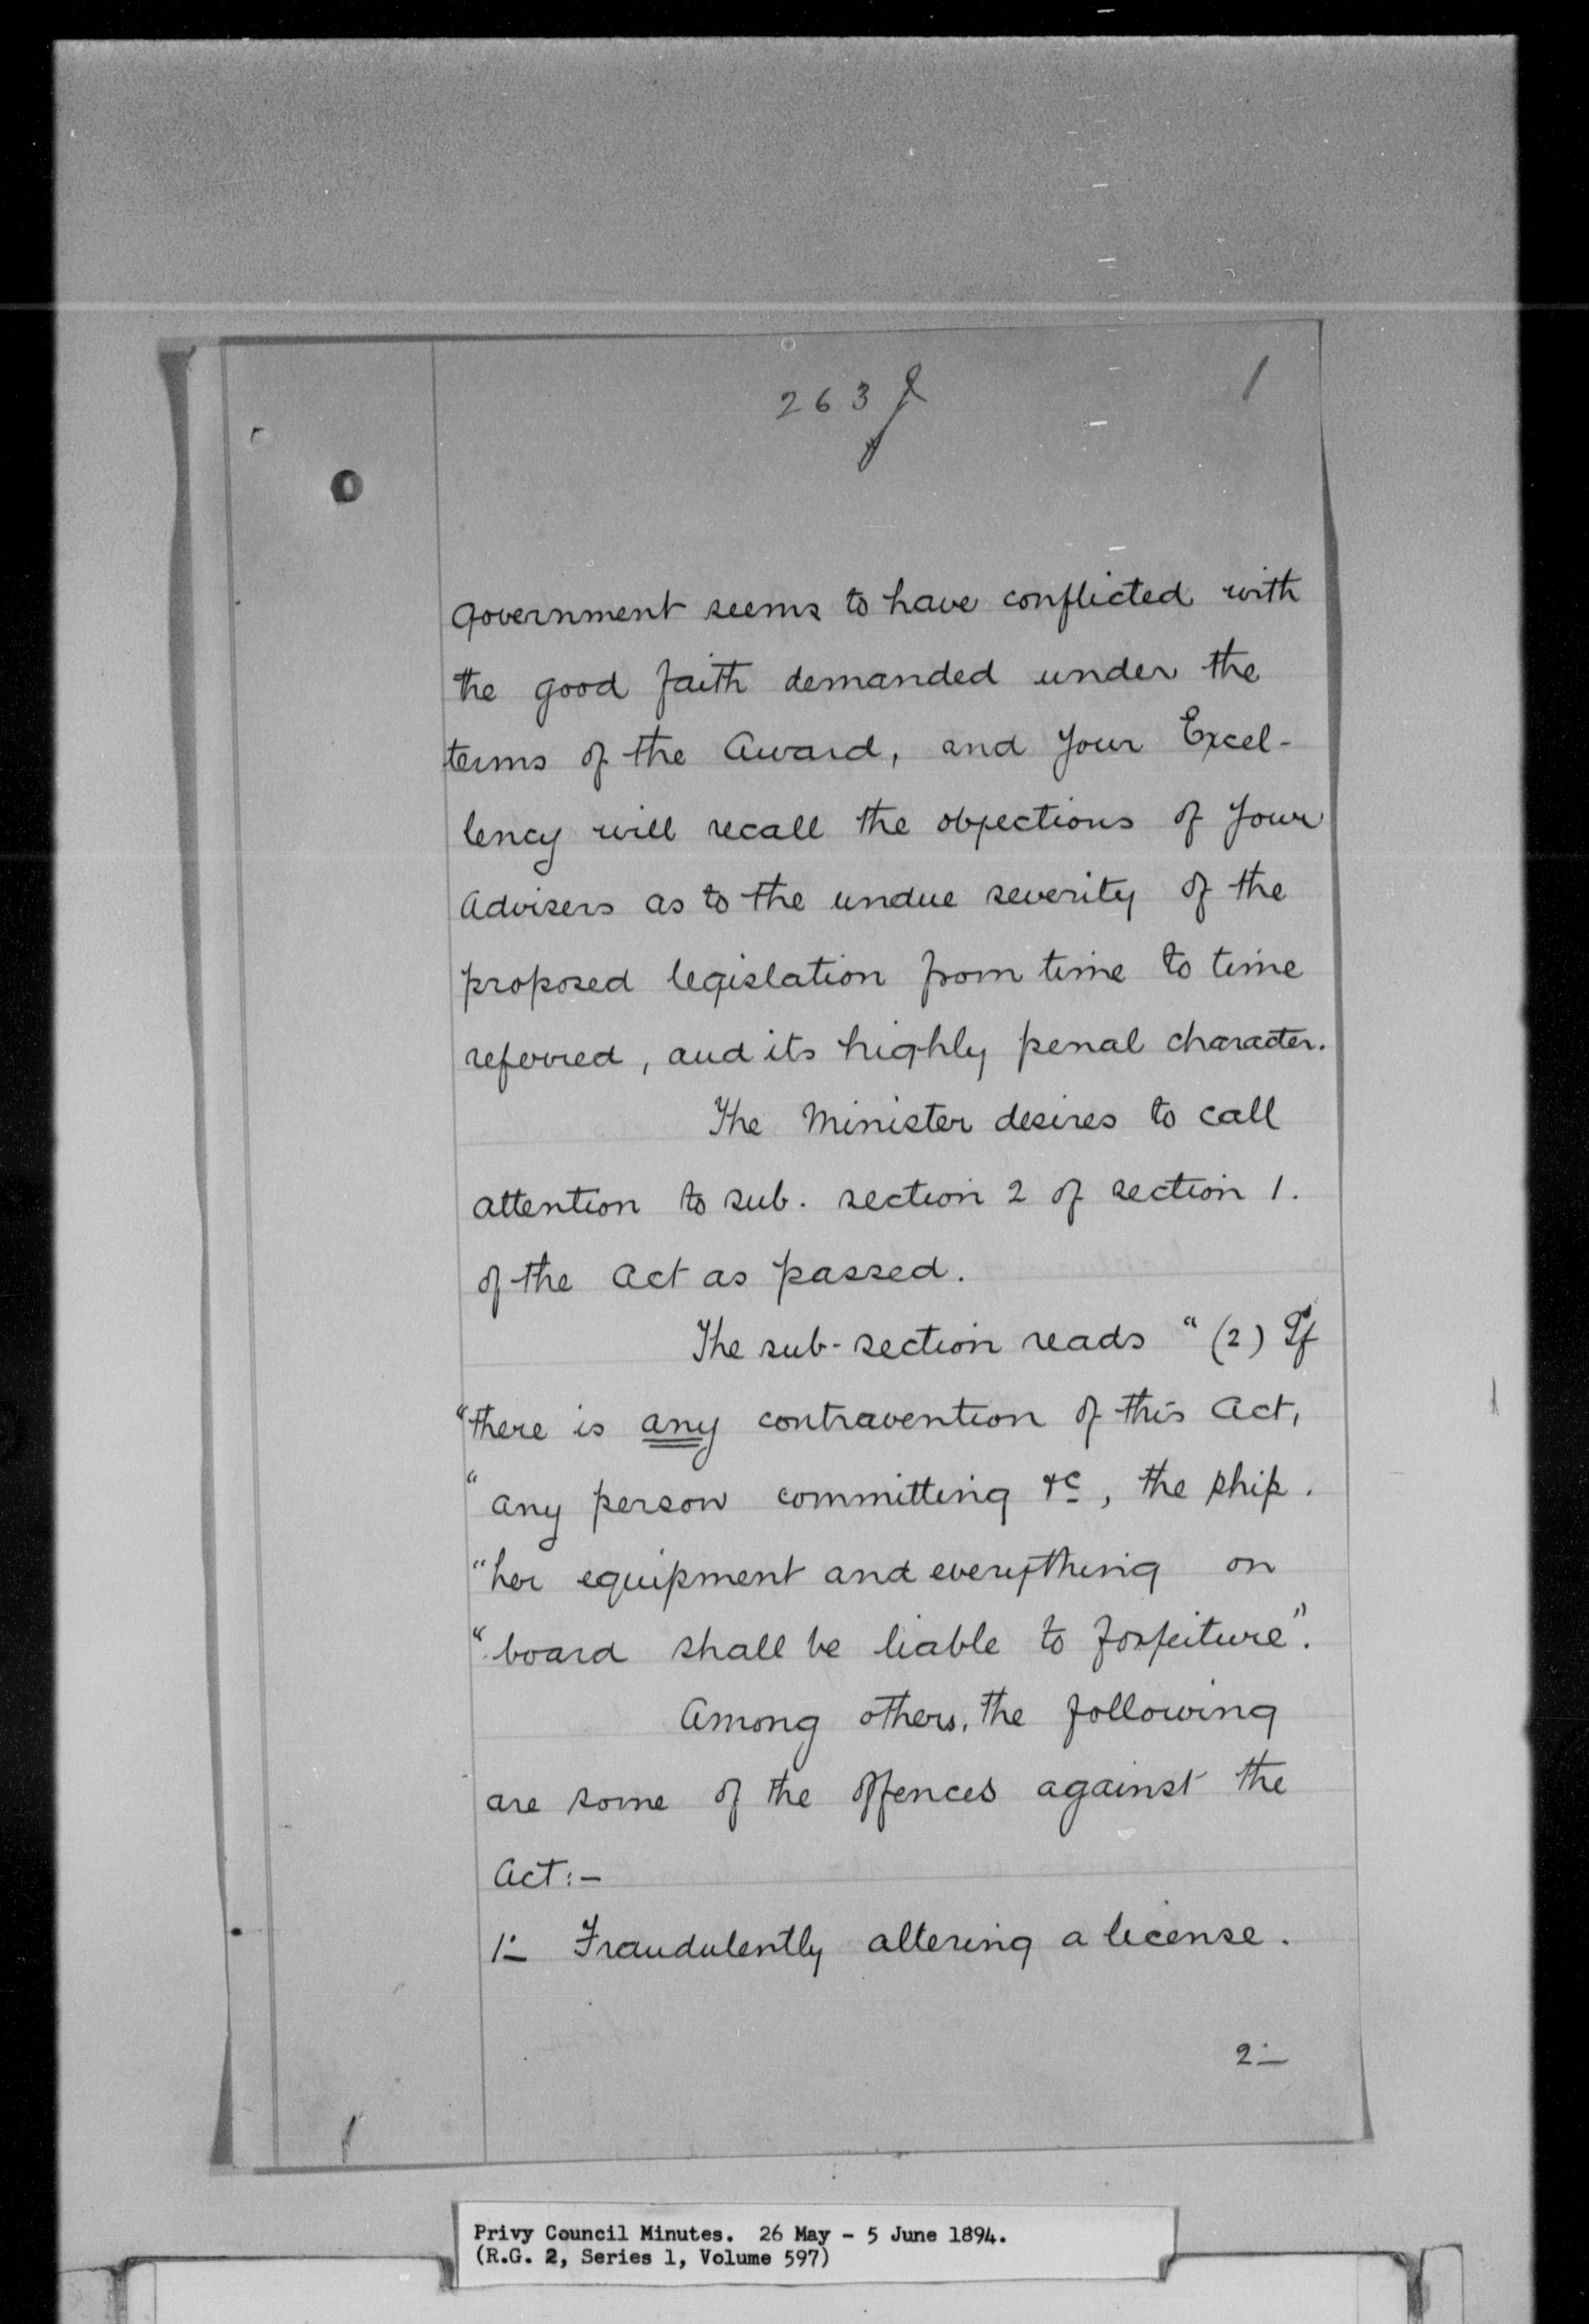 263
government seems to have conflicted with
the good faith demanded under the
terms of the Award, and Your Excel-
lency will recall the objections of Your
Advisers as to the undue severity of the
proposed legislation from time to time
referred, and its highly penal character.
The Minister desires to call
attention to sub. section 2 of section 1.
of the Act as passed.
The sub-section reads "(2) If
"there is any contravention of this Act,
"any person committing &c, the ship.
"her equipment and everything on
"board shall be liable to forfeiture".
Among others, the following
are some of the offences against the
Act:-
1:- Fraudulently altering a license.
2:-
Privy Council Minutes. 26 May - 5 June 1894.
(R.G. 2, Series 1, Volume 597)